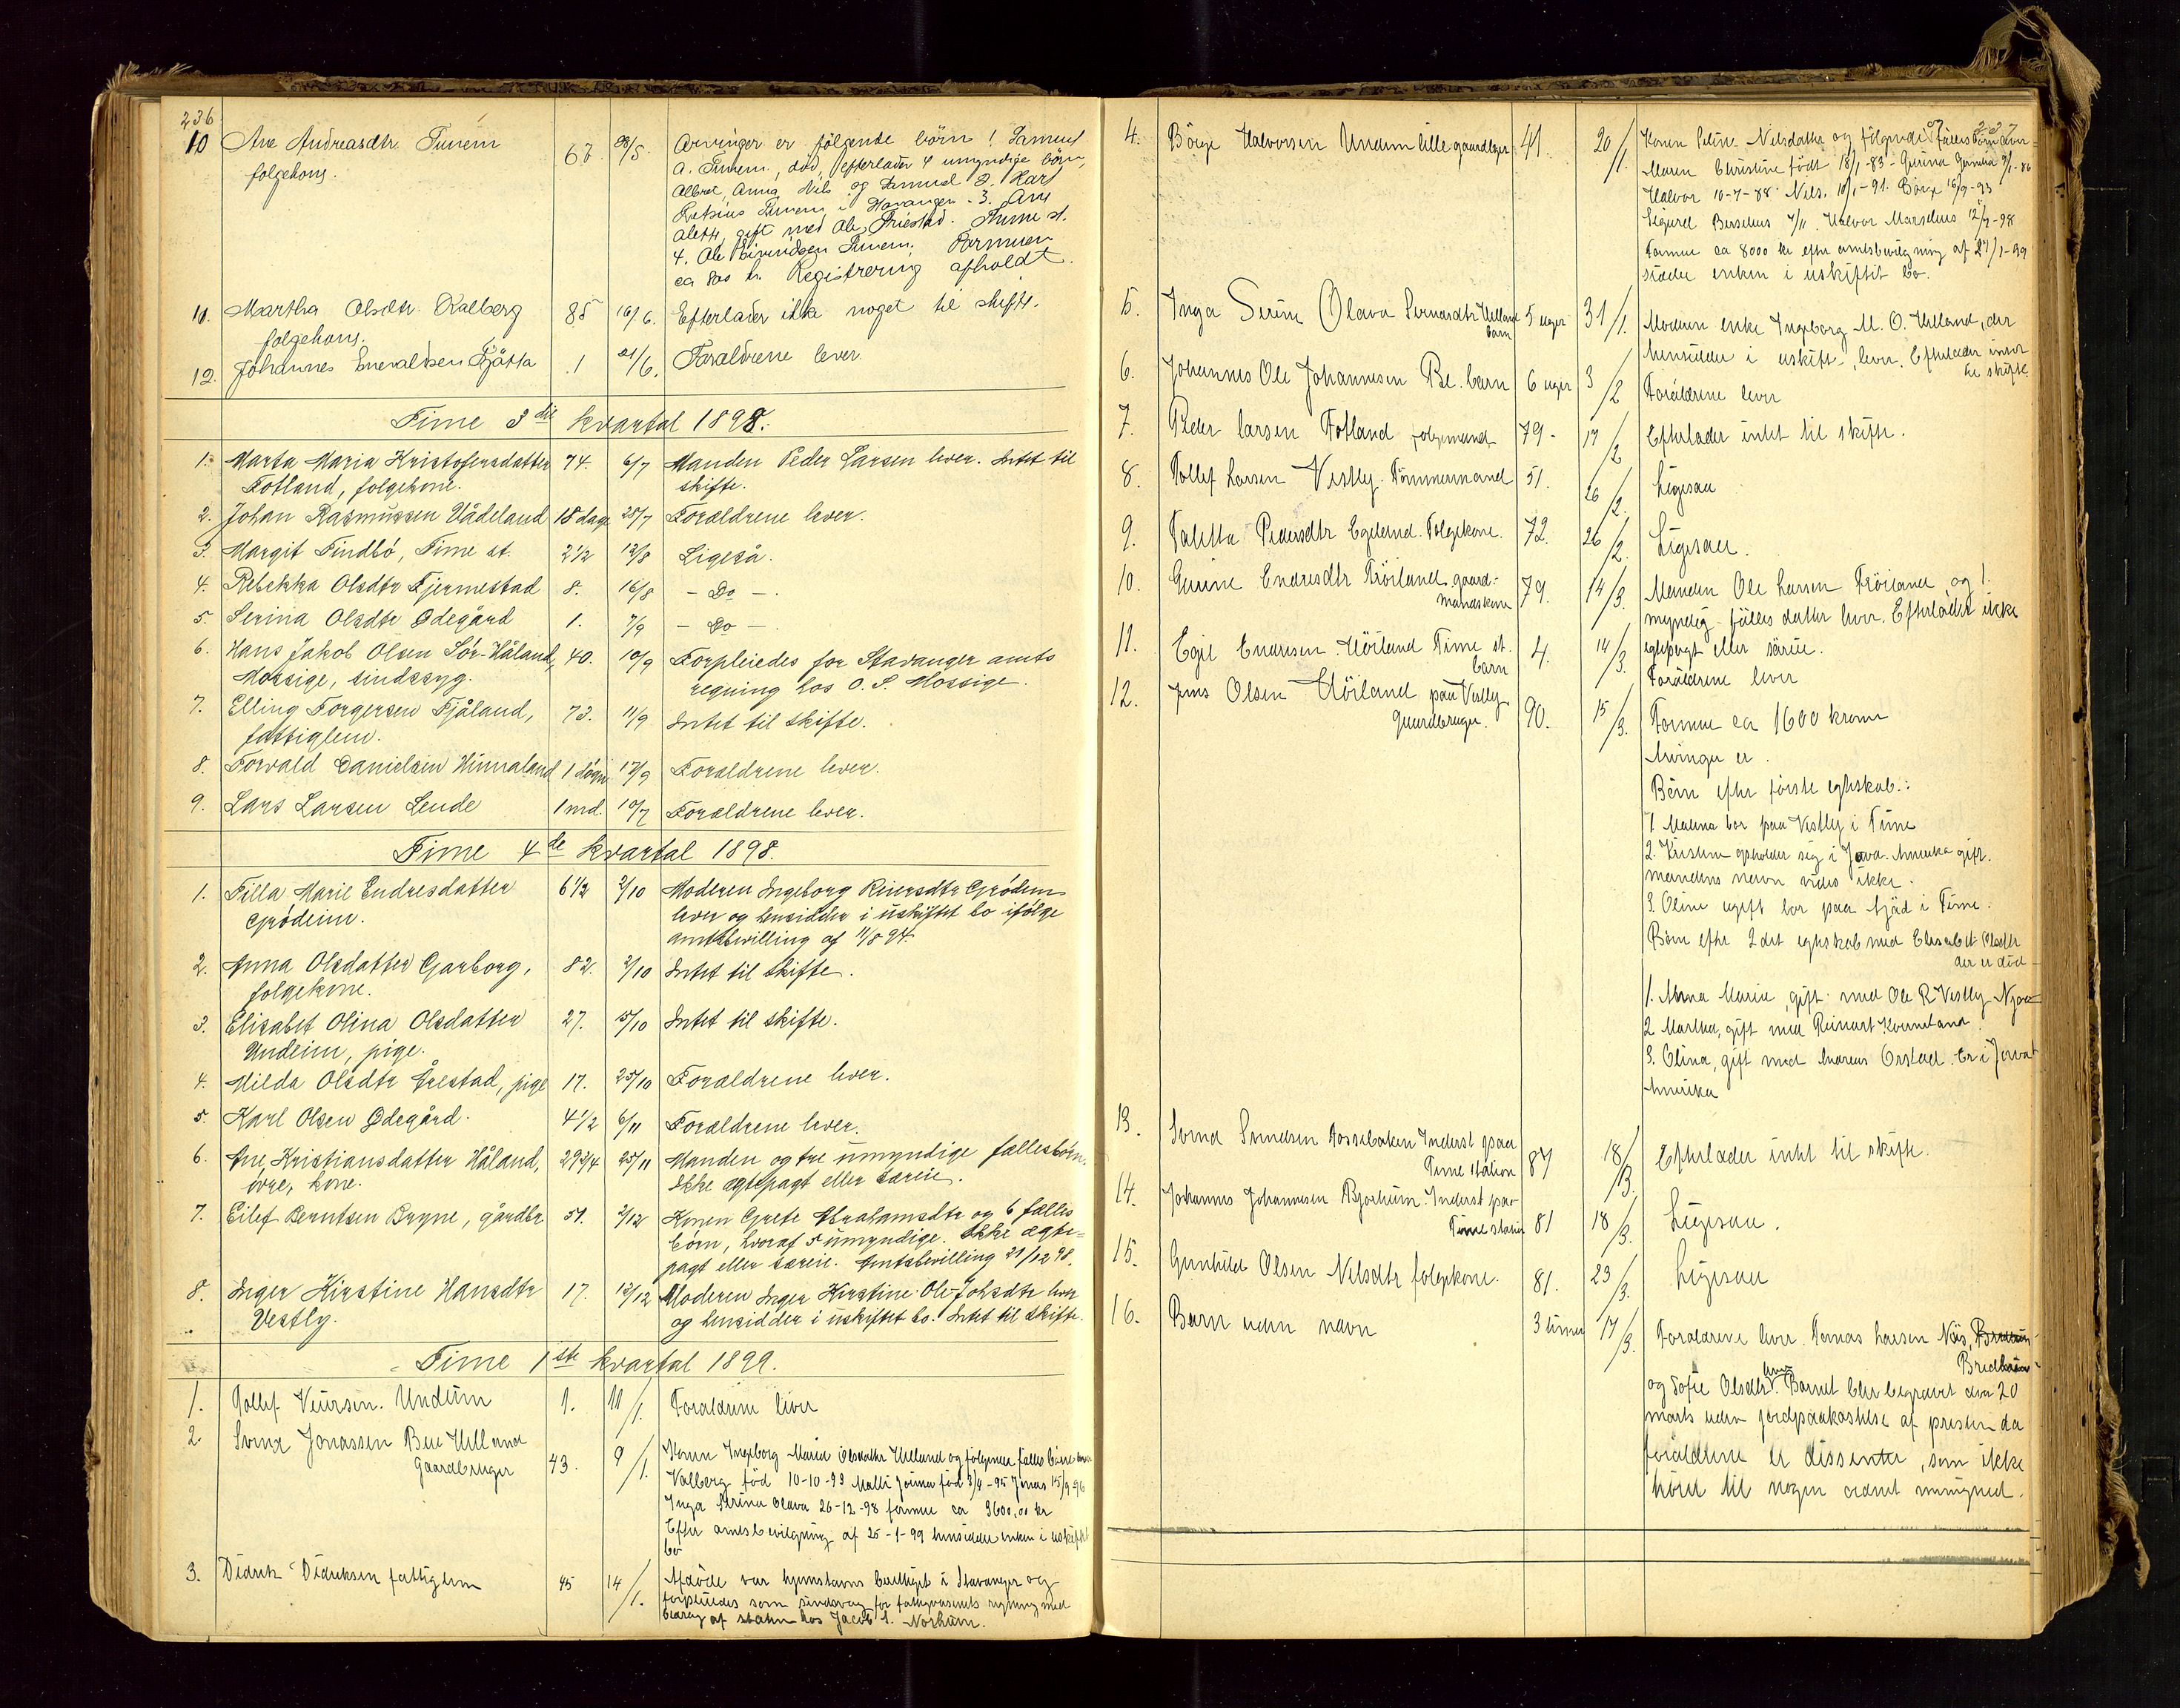 236
10 Ane Andreasdtr. Tunem 67. 28/5. Arvinger er følgende børn 1. Samuel
folgekone. A. Tunem, død, efterlader 4 umyndige børn,
Albert, Anna, Nils og Samuel 2. Karl
Tunem i Stavanger. 3. Ane
Alette, gift med Ole Friestad. Time st.
4. Ole Eivindsen Tunem. Formuen
ca 800 kr. Registrering afholdt.
11. Martha Olsdtr. Kalberg 85 16/6. Efterlader ikke noget til skifte.
folgekone.
12. Johannes Enevaldsen Fjåtta 1 21/6. Forældrene lever
Time 3die kvartal 1898.
1. Marta Maria Kristofersdatter 74. 6/7 Manden Peder Larsen lever. Intet til
Fotland, folgekone. skifte.
2. Johan Rasmussen Vådeland 18 dage 28/7 Forældrene lever.
3. Margit Tindbø, Time st. 2 1/2 12/8 Ligeså.
4. Rebekka Olsdtr Fjermestad 8. 16/8 - Do -.
5. Serina Olsdtr Ødegård 1. 7/9 - Do -
6. Hans Jakob Olsen Sör-Håland, 40. 10/9 Forpleiedes for Stavanger amts
Mossige, sindssyg. regning hos O. S. Mossige.
7. Elling Torgersen Fjåland, 73. 11/9 Intet til skifte.
fattiglem.
8. Torvald Danielsen Hinnaland 1 døgn 17/9 Forældrene lever.
9. Lars Larsen Lende 1 md. 10/7 Forældrene lever.
Time 4de kvartal 1898.
1. Tilla Marie Endresdatter 6 1/2 2/10 Moderen Ingeborg Reiersdtr Grødem
Grødeim. lever og hensidder i uskiftet bo ifölge
amtsbevilling af 11/8 94.
2. Anna Olsdatter Garborg, 82. 2/10 Intet til skifte.
folgekone.
3. Elisabet Olina Olsdatter 27. 15/10 Intet til skifte.
Undeim, pige.
4. Milda Olsdtr Årestad, pige 17. 25/10 Forældrene lever.
5. Karl Olsen Ødegård. 4 1/2 6/11 Forældrene lever.
6. Ane Kristiansdatter Håland, 29 3/4 25/11 Manden og tre umyndige fællesbörn.
övre, kone. Ikke ægtepagt eller særeie.
7. Eilef Berntsen Bryne, gårdbr 51. 2/12 Konen Grete Abrahamsdtr og 6 fælles
börn, hvoraf 5 umyndige. Ikke ægte-
pagt eller særeie. Amtsbevilling 21/12 98.
8. Inger Kirstine Hansdtr 17. 12/12 Moderen Inger Kirstine Ole-Johsdtr lever
Vestly. og hensidder i uskiftet bo. Intet til skifte.
Time 1ste kvartal 1899.
1. Tollef Undeim 1. 11/1. Foraldrene lever
2 Svend Jonassen Bue Ueland 43. 9/1. Konen Ingeborg Maria Olsdatter Uelland og følgende fælles børn
Gaardbruger Valborg fød 10-10-93 Malli fød 3/4-95 Jonas 15/9 96
Inga Serine Olava 26-12-98 formue ca 3600,00 kr
Efter amtsbevilgning af 25-1-99 hensidder enken i uskiftet
bo
3. Didrik Didriksen fattiglem 45 14/1. Afdöde var hjemstavns berettiget i Stavanger og
forpleiedes som sindssvag for fattigvæsenets regning med
bidrag af staten hos Jacob S. Norheim.
237
4. Börge Halvorsen Undem lille gaardbruger 41. 20/1. Konen Nilsdatter og følgende fælles børn
Maren Christine født 18/1-83 - Gurina 9/1-86
Halvor 10-7-88 Nils. 10/1-91. Börge 16/9-93
Sigurd 7/11. Halvor Marselius 12/7-98
Formue ca 8000 kr efter amtsbevilgning af 27/1-99
sidder enken i uskiftet bo.
5. Inga Serine Olava Svendsdtr Uelland 5 uger 31/1. Moderen enke Ingeborg M. O. Uelland, der
barn hensidder i uskift., lever. Efterlader intet
til skifte
6. Johannes Ole Johannesen Be. barn 6 uger 3/2 Foraldrene lever
7. Peder Larsen Fotland folgemand 79- 17/2 Efterlader intet til skifte.
8. Tollef Larsen Vestly. Tømmermand 51. 26/2. Ligesaa
9. Taletta Pedersdtr Egeland. Folgekone. 72. 26/2. Ligesaa.
10. Gurine Endresdtr Fröiland gaard- 79. 14/3. Manden Ole Larsen Fröiland og 1.
mandskone myndig fælles datter lever. Efterlader ikke
egtepagt eller säreie.
11. Egil Endresen Höiland Time st. 4. 14/3. Foraldrene lever
barn
12. Jens Olsen Höiland paa Vestly 90. 15/3. Formue ca 1600 kroner
Gaardbruger. Arvinger er
Börn efter förste egteskab.:
1. Malena bor paa Vestly i Time
2. Kirsten opholder sig i Jova. Amerika gift.
mandens navn vides ikke.
3. Oline ugift bor paa Njåd i Time.
Börn efter 2det egteskab med Elisabet Olsdtr
der er död
1. Anna Marie, gift med Ole R Vestly
2 Martha, gift med Reinart Kverneland
3. Olina, gift med Andreas Orstad. Er i Jova
Amerika
13. Svend Svendsen Fossebakken Inderst paa 87 18/3. Efterlader intet til skifte.
Time station
14. Johannes Johannesen Bjorheim. Inderst paa 81 18/3. Ligesaa.
Time station
15. Gunhild Olsen Nilsdtr folgekone. 81. 23/3. Ligesaa
16. Barn uden navn 3 timer 17/3. Foraldrene lever. Tomas Larsen Näs,
og Sofie Olsdtr Barnet blev begravet den 20
marts uden jordpaakastelse af presten da
foraldrene er dissenter, som ikke
hörer til nogen ordnet menighed.